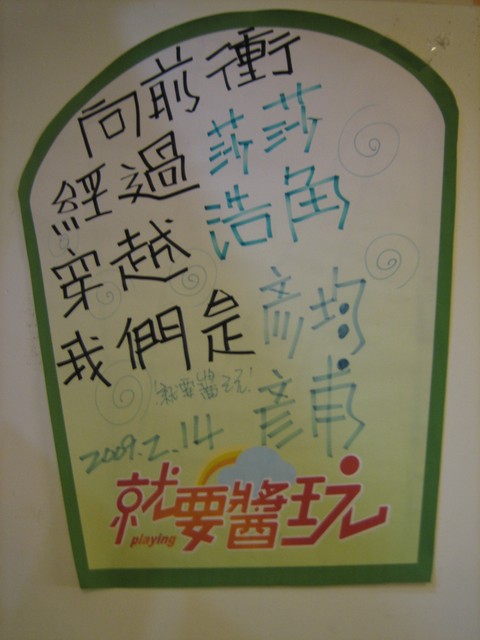 向前衝
經過莎莎
穿越浩角
我們是彥均
彥甫
就要醬玩!
2009.2.14
就要醬玩
playing